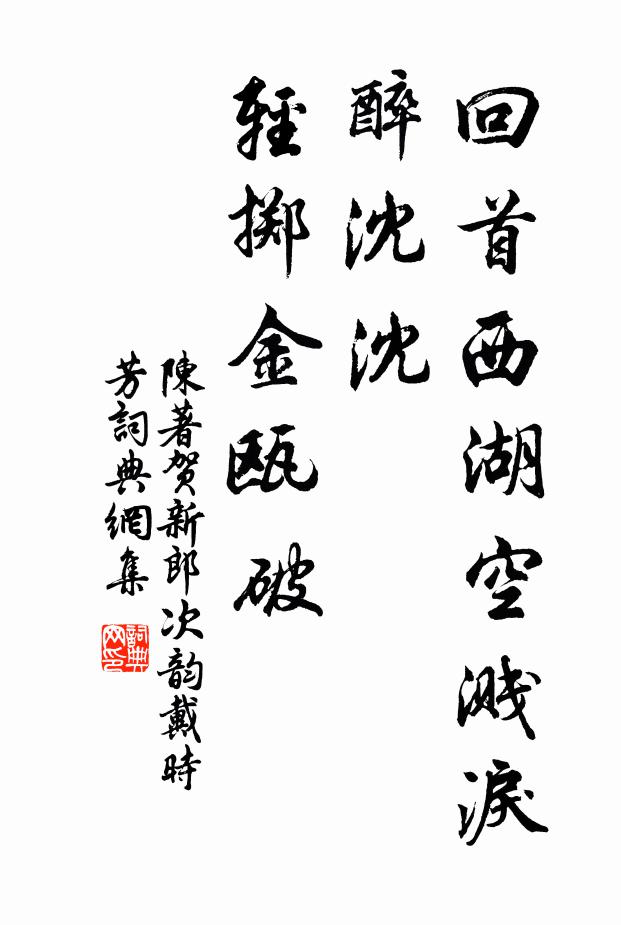 回首西湖空溅淚
醉沈沈
輕掷金瓯破
陳著賀新郎次韵戴時
芳詞典網集
詞典
网印